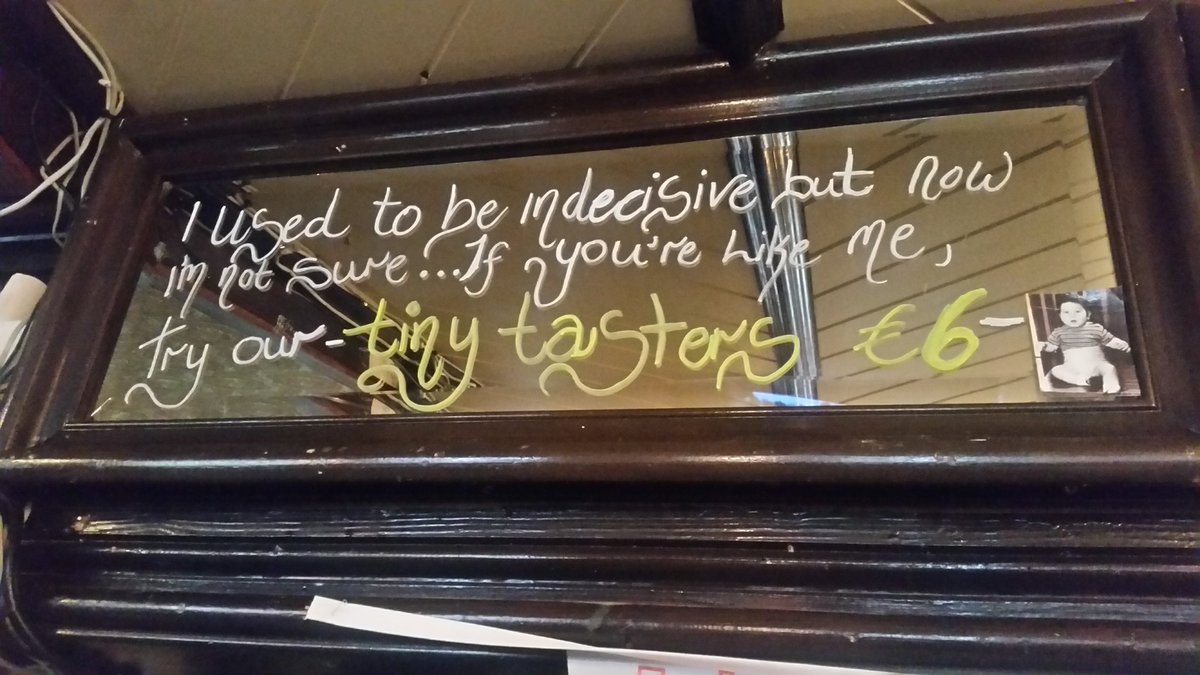 I used to be indecisive but now
i'm not sure...If you're like me,
try our - tiny tasters €6-